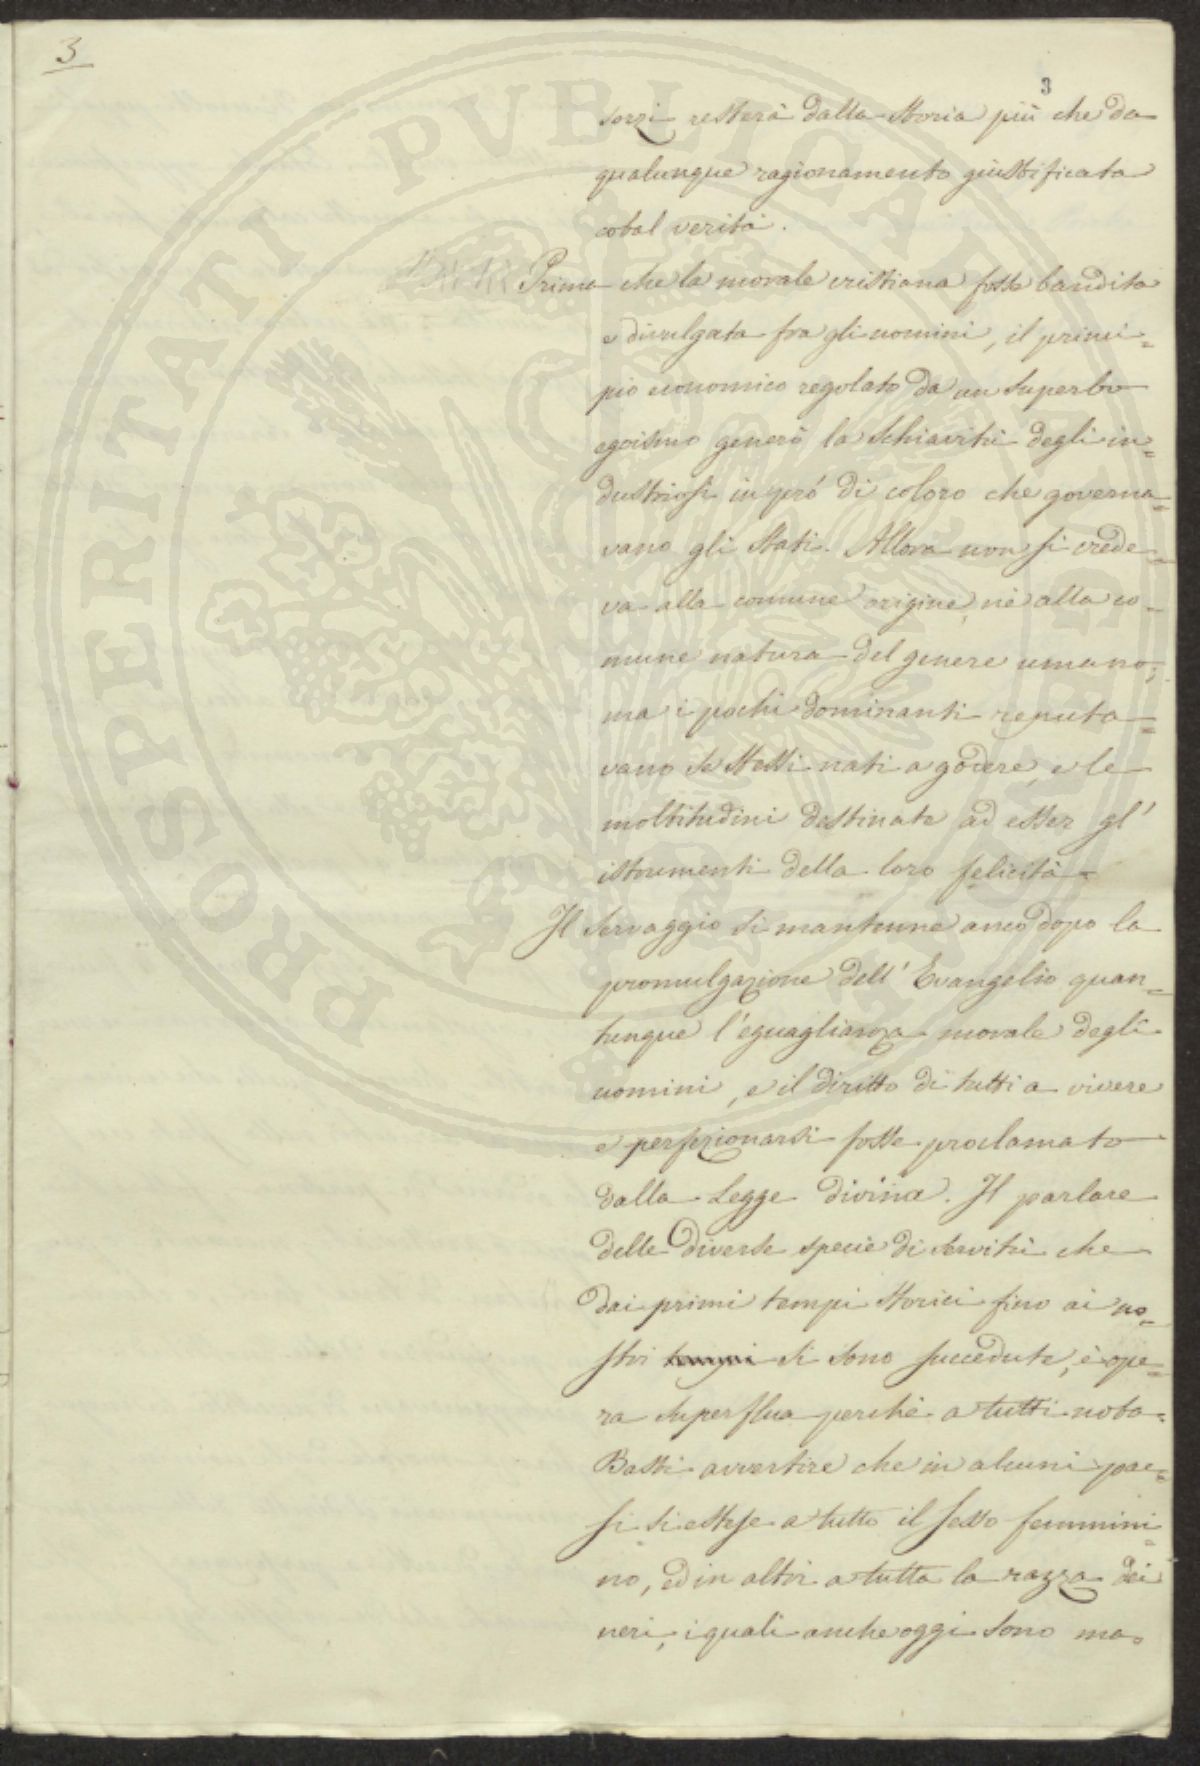 3
3
sorzi resterà dalla Storia più che da
qualunque ragionamento giustificata
cotal verità.
Prima che la morale cristiana fosse bandita
e divulgata fra gli uomini, il princi=
pio economico regolato da un superbo
egoismo generò la schiavitù degli in=
dustriosi in pró di coloro che governa=
vano gli Stati. Allora non si crede=
va alla comune origine, nè alla co=
mune natura del genere umano;
ma i pochi dominanti reputa=
vano se stessi nati a godere, e le
moltitudini destinate ad esser gl'
istrumenti della loro felicità.
Il servaggio si mantenne anco dopo la
promulgazione dell'Evangelio quan=
tunque l'eguaglianza morale degli
uomini, e il diritto di tutti a vivere
e perfezionarsi fosse proclamato
dalla Legge divina. Il parlare
delle diverse specie di servitù che
dai primi tempi storici fino ai no=
stri tempi si sono succedute, è ope=
ra superflua perchè a tutti nota.
Basti avvertire che in alcuni pae=
si si estese a tutto il sesso femmini=
no, ed in altri a tutta la razza dei
neri, i quali anche oggi sono ma=
PROSPERITATI PVBLICAE